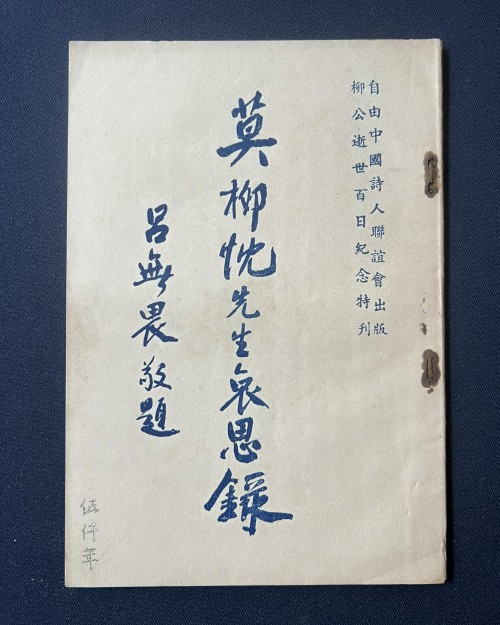 自由中國詩人聯誼會出版
柳公逝世百日紀念特刊
莫柳忱先生哀思錄
呂無畏敬題